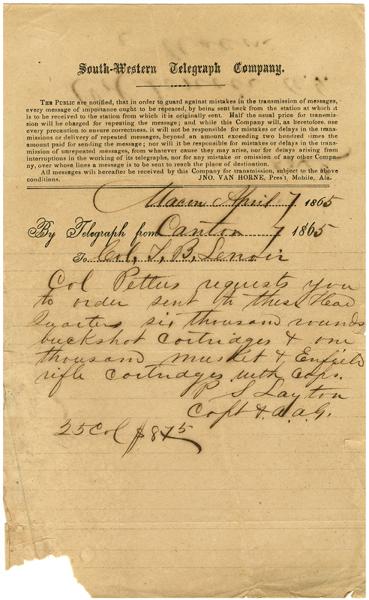 South-Western Telegraph Company.
THE PUBLIC are notified, that in order to guard against mistakes in the transmission of messages,
every message of importance ought to be repeated, by being sent back from the station at which it
is to be received to the station from which it is originally sent. Half the usual price for transmis-
sion will be charged for repeating the message; and while this Company will, as heretofore, use
every precaution to ensure correctness, it will not be responsible for mistakes or delays in the trans-
mission or delivery of repeated messages, beyond an amount exceeding two hundred times the
amount paid for sending the message; nor will it be responsible for mistakes or delays in the trans-
mission of unrepeated messages, from whatever cause they may arise, nor for delays arising from
interruptions in the working of its telegraphs, nor for any mistake or omission of any other Compa-
ny, over whose lines a message is to be sent to reach the place of destination.
All messages will hereafter be received by this Company for transmission, subject to the above
conditions. JNO. VAN HORNE, Pres't, Mobile, Ala.
Macon April 7 1865
By Telegraph from Canton 7 1865
To Col. T. B. Lenoir
Col Pettus requests you
to order sent to these Head
Quarters six thousand rounds
buckshot cartridges & one
thousand musket & Enfield
rifle cartridges with caps.
P S Layton
Capt & A.A.G.
25 Col $8 75